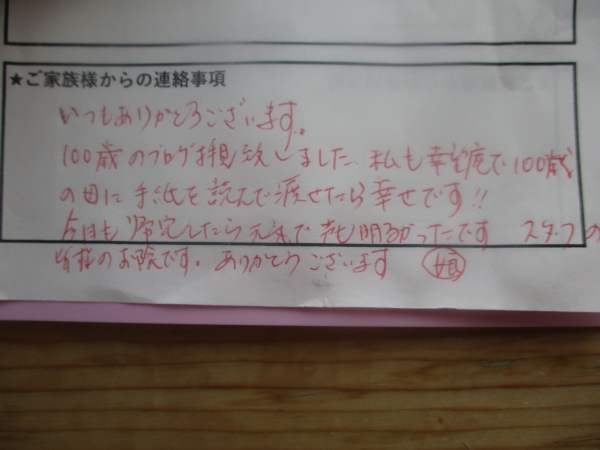 ★ご家族様からの連絡事項
いつもありがとうございます。
100歳のブログ拝見致しました、私も幸 庵で100歳
の日に手紙を読んで渡せたら幸せです!!
今日も帰宅したら元気で声も明るかったです スタッフの
皆様のお陰です。ありがとうございます 娘